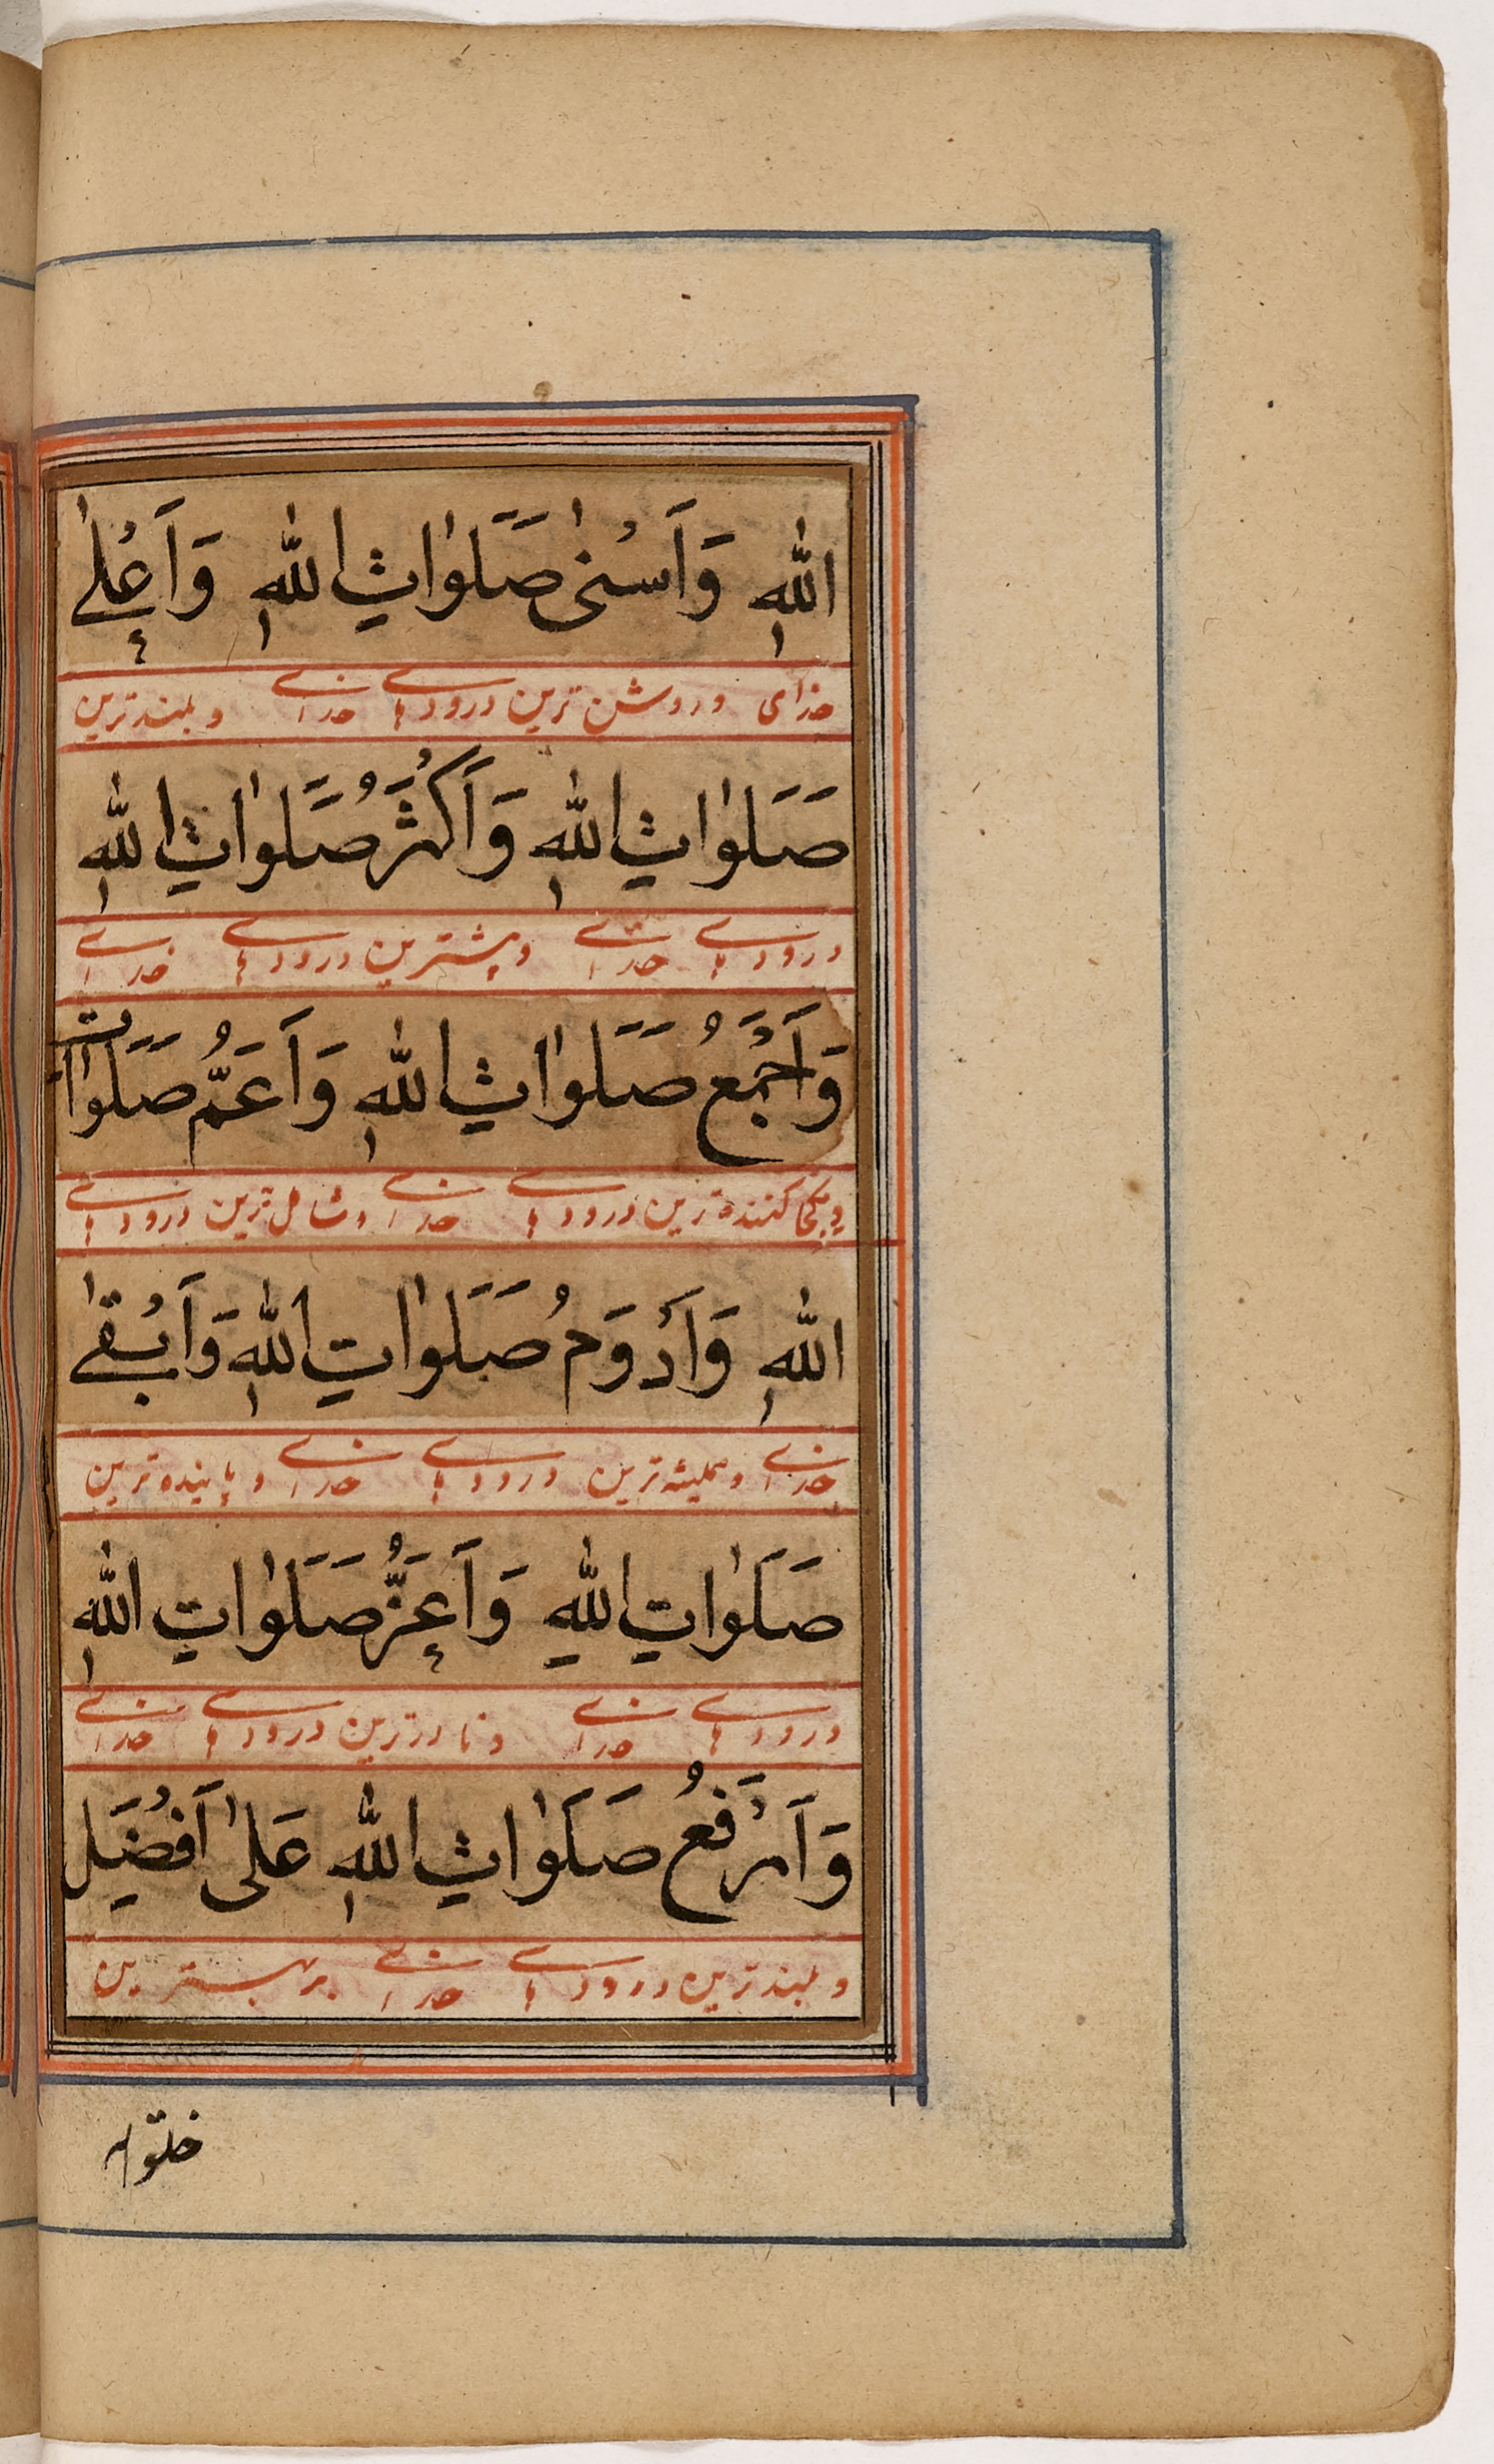 اللهِ وَاَسْنىٰ صَلَوٰاتِ اللهِ وَاَعْلىٰ
خدای و روشن ترین درودهای خدای و بلندترین
صَلَوٰاتِ اللهِ وَاَكْثَرُ صَلَوٰاتِ اللهِ
درودهای خدای و بیشترین درودهای خدای
وَاَجْمَعُ صَلَوٰاتِ اللهِ وَاَعَمُّ صَلَوٰاتِ
و یکجا کننده ترین درودهای خدای و شامل ترین درودهای
اللهِ وَاَدْوَمُ صَلَوٰاتِ اللهِ وَاَبْقىٰ
خدای و همیشه ترین درودهای خدای و پاینده ترین
صَلَوٰاتِ اللهِ وَاَعَزُّ صَلَوٰاتِ اللهِ
درودهای خدای و نادرترین درودهای خدای
وَاَرْفَعُ صَلَوٰاتِ اللهِ عَلىٰ اَفْضَلِ
و بلندترین درودهای خدای بر بهترین
خلق الله